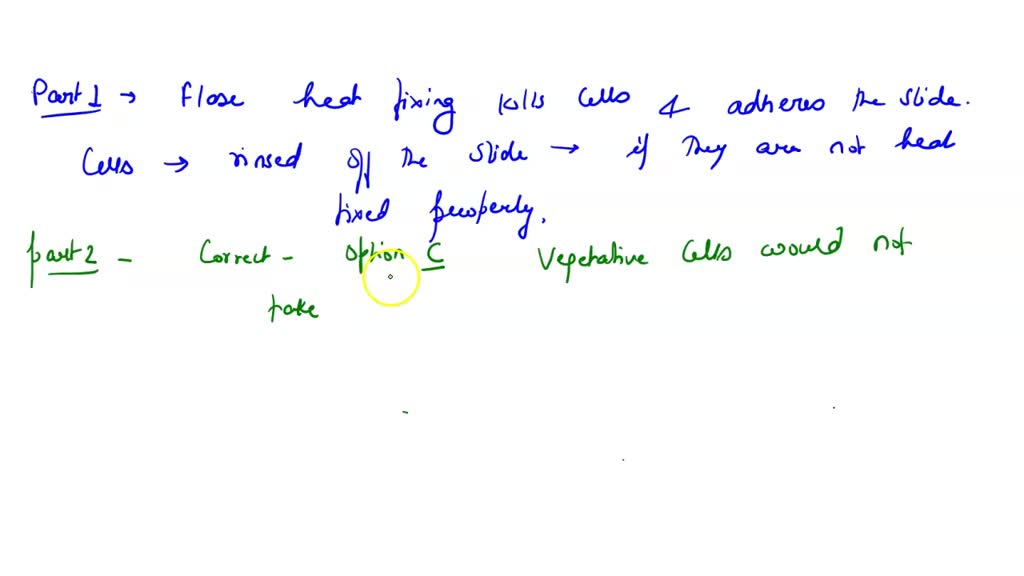 Part 1 → Flase heat fixing kills cells & adheres the slide.
Cells → rinsed off the slide → if they are not heat
fixed properly.
part 2 - Correct - option C Vegetative cells would not
take